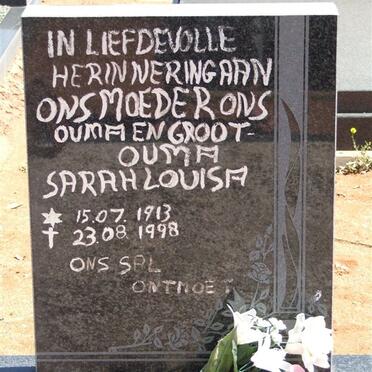 IN LIEFDEVOLLE
HERINNERING AAN
ONS MOEDER ONS
OUMA EN GROOT-
OUMA
SARAH LOUISA
15.07.1913
23.08.1998
ONS SAL
ONTMOET